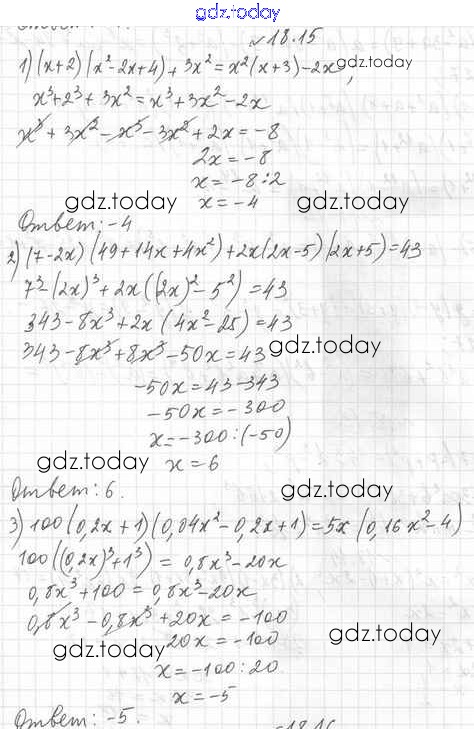 gdz.today
№18.15
1) (x+2)(x²-2x+4)+3x²=x²(x+3)-2x, gdz.today
x³+2³+3x²=x³+3x²-2x
x³+3x²-x³-3x²+2x=-8
2x=-8
x=-8:2
gdz.today x=-4 gdz.today
Ответ: -4
2) (7-2x)(49+14x+4x²)+2x(2x-5)(2x+5)=43
7³-(2x)³+2x((2x)²-5²)=43
343-8x³+2x(4x²-25)=43
343-8x³+8x³-50x=43 gdz.today
-50x=43-343
-50x=-300
x=-300:(-50)
gdz.today x=6
Ответ: 6. gdz.today
3) 100(0,2x+1)(0,04x²-0,2x+1)=5x(0,16x²-4)
100((0,2x)³+1³)=0,8x³-20x
0,8x³+100=0,8x³-20x
0,8x³-0,8x³+20x=-100
gdz.today 20x=-100 gdz.today
x=-100:20
x=-5
Ответ: -5.